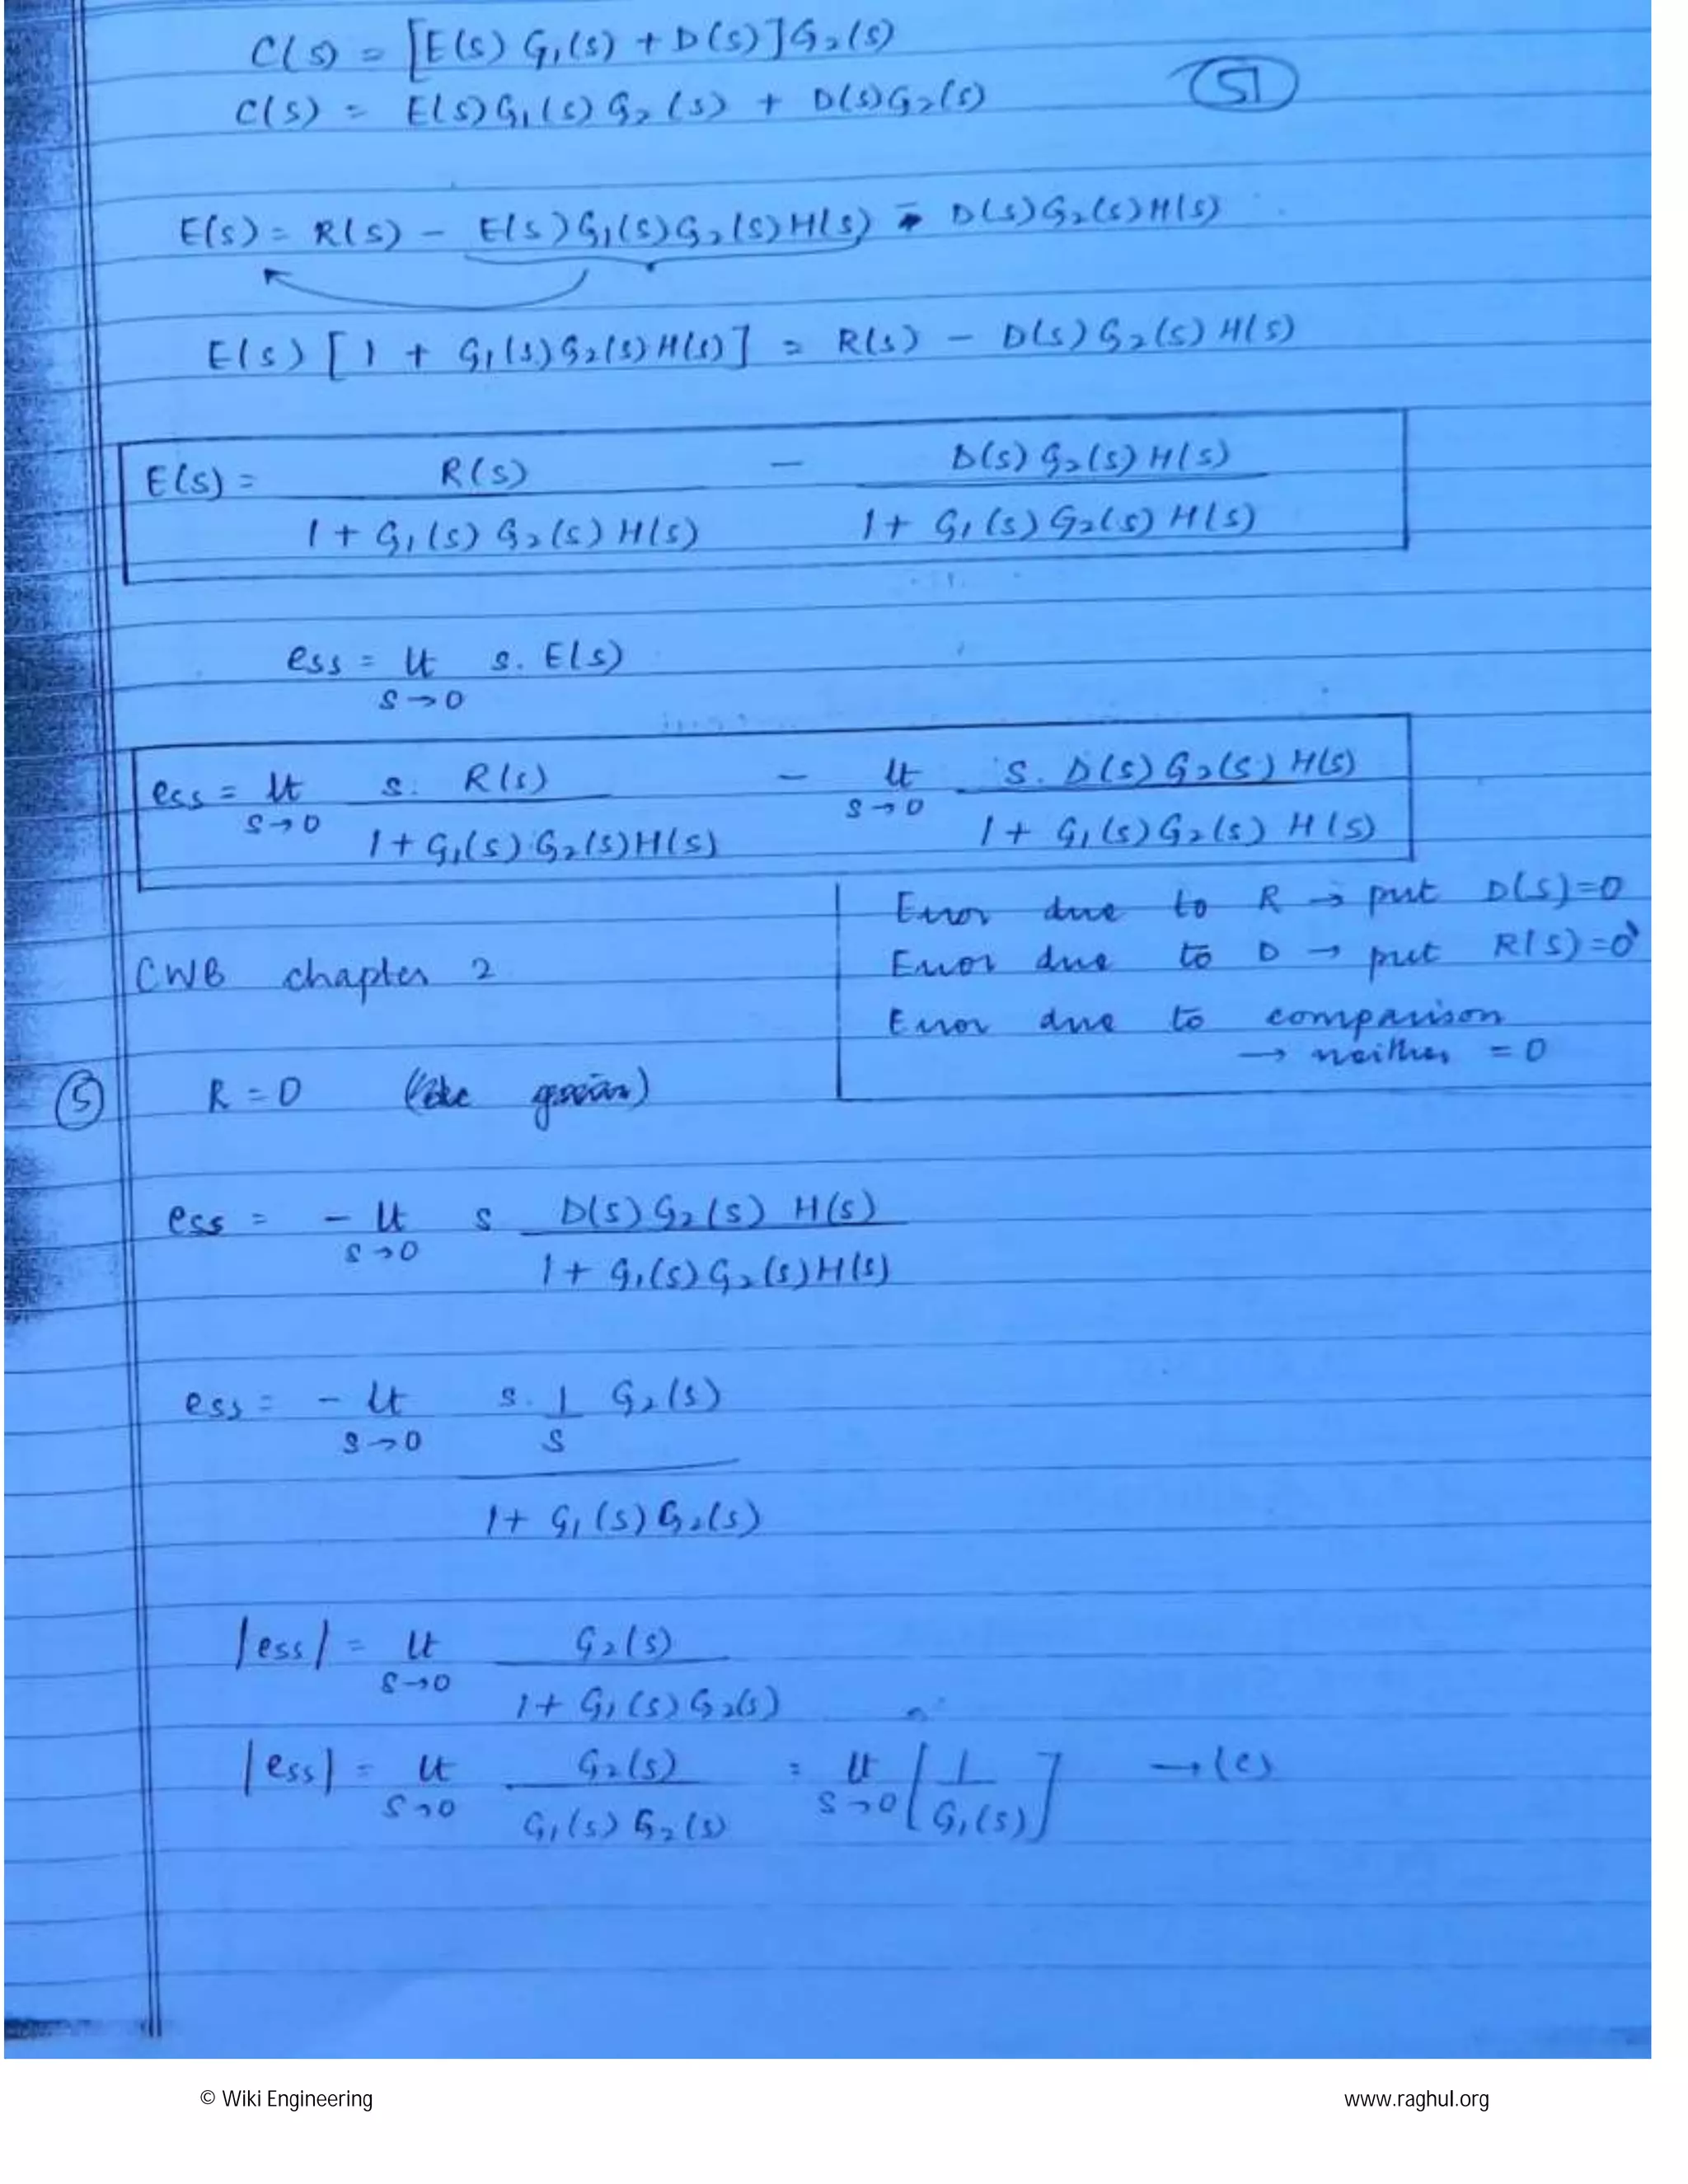 C(s) = [E(s) G₁(s) + D(s)] G₂(s)
51
C(s) = E(s) G₁(s) G₂(s) + D(s) G₂(s)
E(s) = R(s) - E(s) G₁(s) G₂(s) H(s) - D(s) G₂(s) H(s)
E(s) [1 + G₁(s) G₂(s) H(s)] = R(s) - D(s) G₂(s) H(s)
E(s) = R(s) - D(s) G₂(s) H(s)
1 + G₁(s) G₂(s) H(s) 1 + G₁(s) G₂(s) H(s)
ess = lt s. E(s)
s→0
ess = lt s. R(s) - lt s. D(s) G₂(s) H(s)
s→0 1 + G₁(s) G₂(s) H(s) s→0 1 + G₁(s) G₂(s) H(s)
Error due to R → put D(s)=0
Error due to D → put R(s)=0
Error due to comparison
→ neither = 0
CWB chapter 2
5 R = 0
ess = - lt s D(s) G₂(s) H(s)
s→0 1 + G₁(s) G₂(s) H(s)
ess = - lt s. 1 G₂(s)
s→0 s
1 + G₁(s) G₂(s)
|ess| = lt G₂(s)
s→0 1 + G₁(s) G₂(s)
|ess| = lt G₂(s) = lt [1] → (c)
s→0 G₁(s) G₂(s) s→0 [G₁(s)]
© Wiki Engineering
www.raghul.org